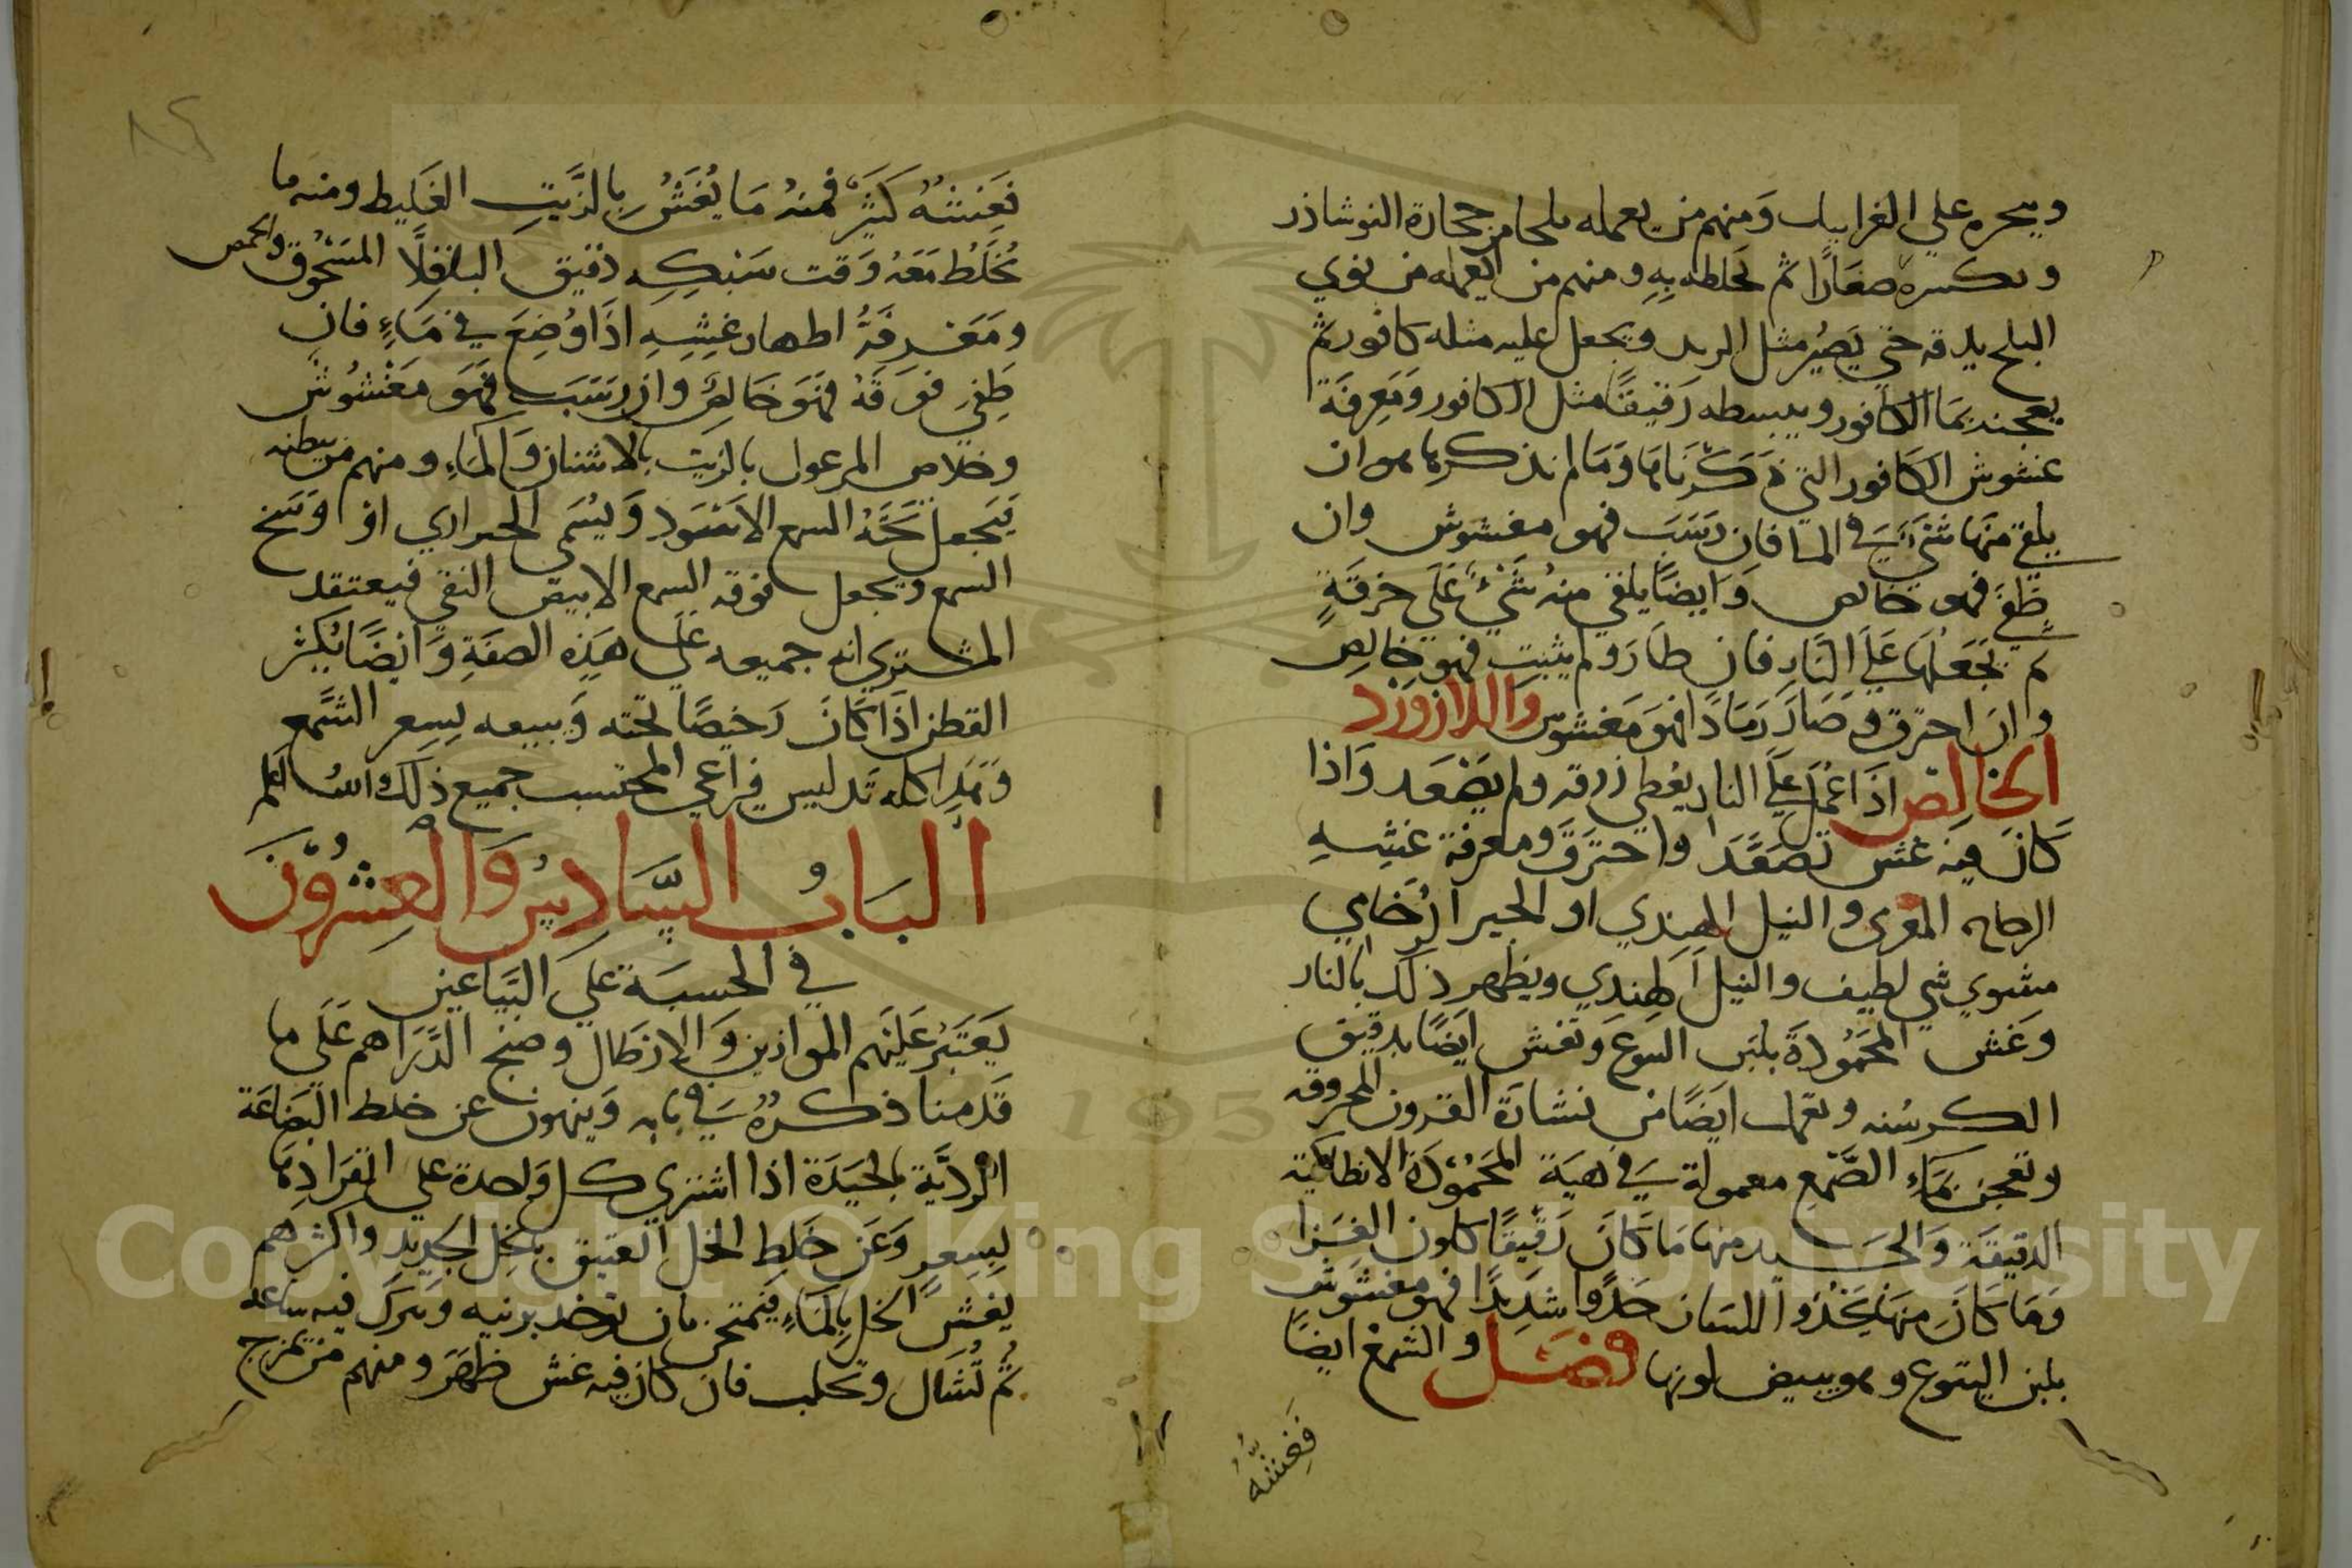 ويجره علي الغرابيل وَمنهم من يعمله ملحا من حجارة النوشاذر
ويكسره صغَارًا ثم يخلطه بِهِ ومنهم من يعمله من نوي
البلح يدقه حتي يَصُير مثل الريد ويجعل عليه مثله كافور ثم
يعجنه بمَا الكافور ويبسطه رَقيقًا مثل الكافور وَمَعِرفَة
غشوش الكافور التي ذكرَناهَا وَمَا لم نذكرها هو ان
يلقي منَها شَيْ في الما فان رَسَبَ فهو مغشوش وان
طَفي فهو خالص وَايضًا يلقي منهُ شَيْءً عَلَي خرقَةٍ
ثم تجَعَلهَا عَلي النَار فان طاَرَ ولم يثبت فهو خالِص
وان احترق وصَارَ رَمَادًا فهوَ مَغشوش وَاللازوَرد
الخالِص اذَا عُمِل عَلَي النار يعُطي زرقه ولم يصَعَد وَاذا
كَانَ فيه غش تصَعَّدَ واحتَرَقَ ومعرفة غشِهِ
المغري والنيل الهندي او الجير الرُخامي
مشوي شي لطيف والنيل الهِندِي ويظهر ذلك بالنار
وَغش المحَمُودَة بلبَن اليتوع وَتغش ايَضًا بدقيق
الكرسُنه وتعمل ايضًا من نشارَة القرون المحروقه
وتعجن بمَاءِ الصَّمغ معمولة في هيَة المحَمُودَة الانطاكية
الدقيقَة وَالجَيد منها مَا كَانَ رَقيقًا كلون الغِرَا
وَمَا كَانَ مِنهَا يَحْذُوا اللسَان حَذْوا شدِيدًا فهو مغشوَش
بلبن اليتوع وهو يبيض لونها فصَل والشمع ايضًا
فَغِشّهُ
فَغِشهُ كَثيٌر فمنهُ مَا يُغَشُ بِالزَّيتِ الغَليط ومنه ما
يُخلَطُ مَعَهُ وَقت سَبكِهِ دقيق الباقِلَّا المَسْحُوق والحمص
ومَعَرِفَةُ اظهار غِشِهِ اذَا وُضِعَ في مَاءٍ فان
طَفِيَ فوَقَهُ فهَوَ خَالِصٌ وان رَسَبَ فهَوَ مَغْشُوشٌ
وخلاص المرعول بالزيَت بالاشنان وَالماءِ ومنهم من يبطنه
يَجعل تحَتَهُ الشمع الاسَوَد وَيسُمَي الحراري او وَسَخ
الشمع ويجعل فوقه الشمع الابيض النقي فيعتقد
المشتري انه جميعه عَلَي هَذِه الصفَةِ وَايضًا يُكثر
القطن اذَا كَانَ رَخيصًا تحته وَيبيعه بسِعر الشَّمع
وَهَذا كله تدليس فراعي المحتسب جميع ذلك والله اعلم
البَابُ السَّادِسُ وَالعِشرُونَ
في الحسبَة عَلي البَيّاعين
يَعتَبرُ عَلَيهم الموازين وَالارَطال وصنج الدَّرَاهم عَلَي ما
قَدمنا ذكرهُ في بابه وَينهون عن خلط البَضاعَة
الردَيَّة بالجيَدَة اذا اشتري كل وَاحدة علي انفَرادِهَا
بسِعرٍ وَعَن خَلطِ الخل العتيق بالخِل الجديد واكثرهم
يغش الخل بالماءِ فيَمتحن بان توخد برنيه وتترك فيه ساعة
ثم تُشَال وَتحَلب فان كان فيه غش ظهَرَ ومنهم من يمزج
Copyright © King Saud University
195